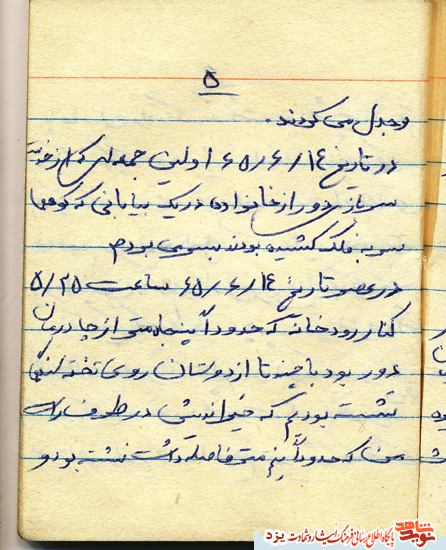 ۵
وجدل می کردند.
در تاریخ ۶۵/۶/۱۴ اولین جمعه ای که از خدمت
سربازی دور از خانواده در یک بیابانی که کوهها
سر به فلک کشیده بودند بسر می بردم
در عصر تاریخ ۶۵/۶/۱۴ ساعت ۵/۲۵
کنار رودخانه که حدوداً پنجاه متر از چادرمان
دور بود با چند تا از دوستان روی تخته سنگی
نشسته بودیم که در طرف راست
من که حدوداً نیم متر فاصله داشت نشسته بود و
نوید شاهد
پایگاه اطلاع رسانی فرهنگ ایثار و شهادت یزد